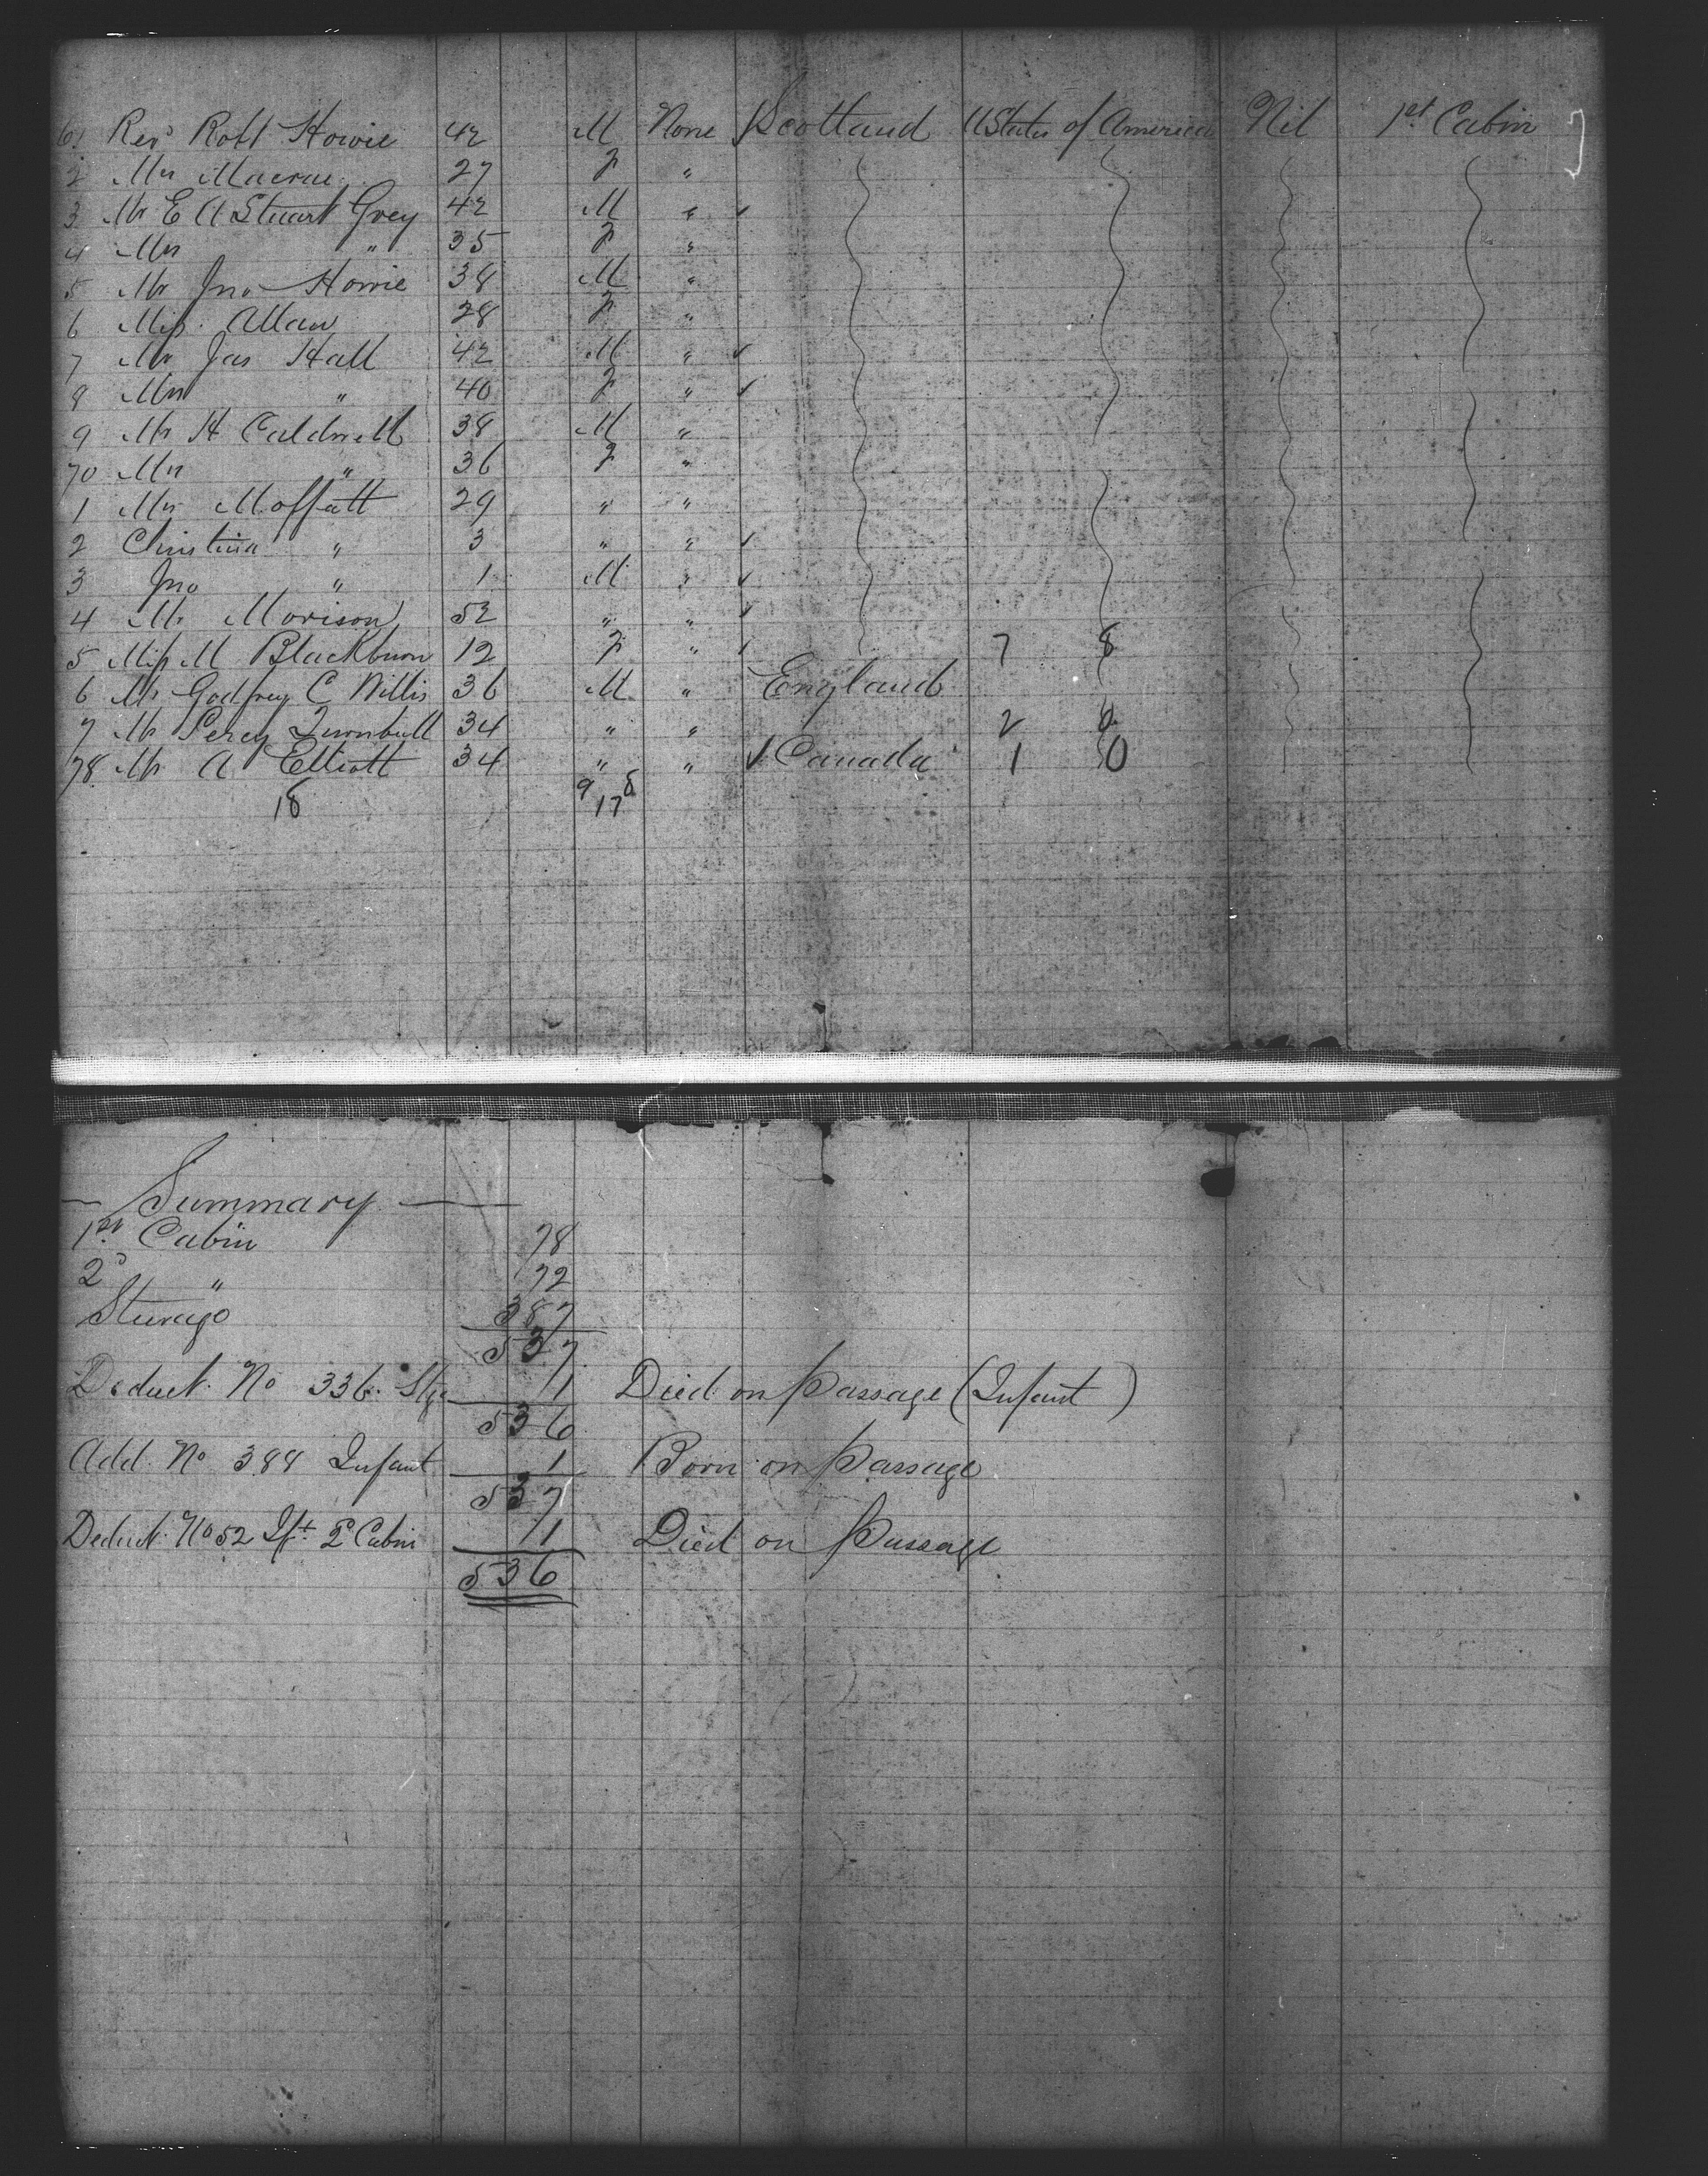 61 Revd Robt Howie 42 M None Scotland UStates of America Nil 1st Cabin
2 Mrs Macrae 27 F "
3 Mr E A Stuart Grey 42 M "
4 Mrs " 35 F "
5 Mr Jno Howie 38 M "
6 Miss Allan 28 F "
7 Mr Jas Hall 42 M " ✓
8 Mrs " 40 F " ✓
9 Mr H Caldwell 38 M "
70 Mrs " 36 F "
1 Mrs Moffatt 29 " "
2 Christina " 3 " " ✓
3 Jno " 1 M " ✓
4 Mr Morison 52 " " ✓
5 Miss M Blackburn 12 F " ✓ 7 8
6 Mr Godfrey C Willis 36 M " England
7 Mr Percy Turnbull 34 " " 2 0
78 Mr A Elliott 34 " " ✓ Canada 1 0
18 9 8
17
Summary
1st Cabin 78
2d " 72
Steerage 387
537
Deduct No 336 Stge 1 Died on Passage (Infant)
536
Add No 388 Infant 1 Born on Passage
537
Deduct No 52 Ift 2d Cabin 1 Died on Passage
536